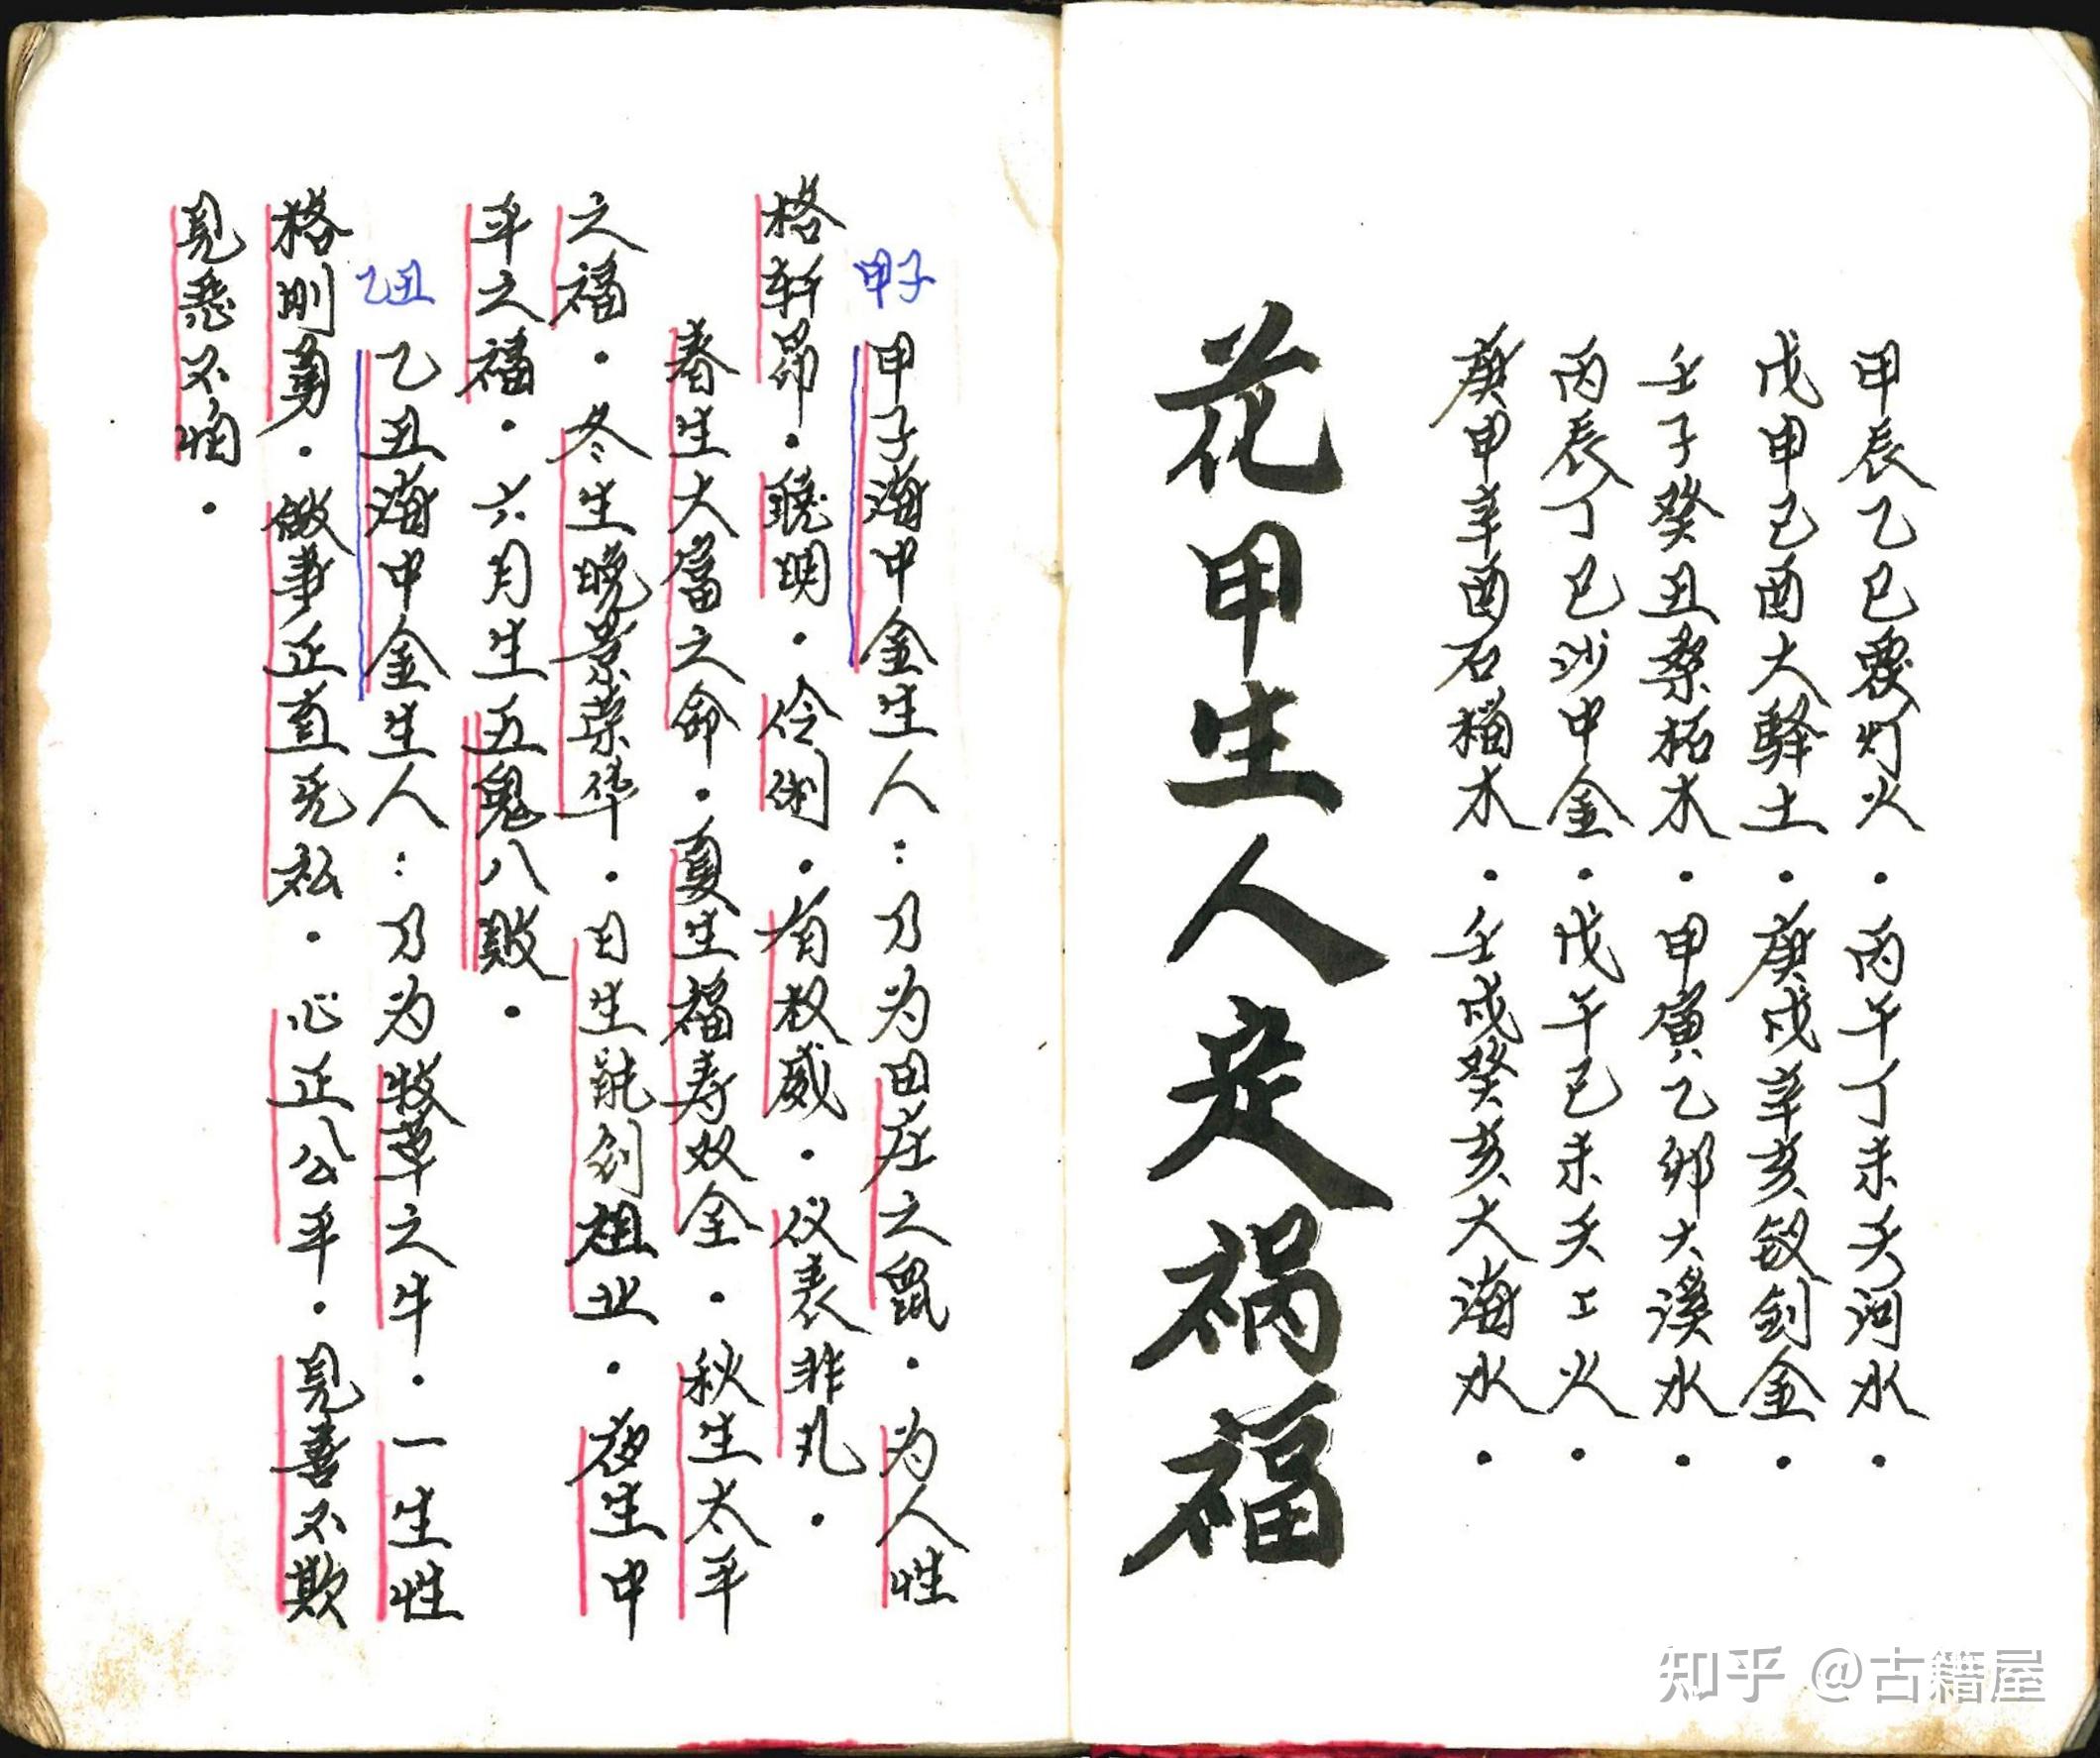 甲辰乙巳覆灯火・丙午丁未天河水・
戊申己酉大驿土・庚戌辛亥钗钏金・
壬子癸丑桑柘木・甲寅乙卯大溪水・
丙辰丁巳沙中金・戊午己未天上火・
庚申辛酉石榴木・壬戌癸亥大海水・
花甲生人定祸福
甲子
甲子海中金生人：乃为田庄之鼠・为人性
格轩昂・聪明・伶俐・有权威・仪表非凡・
春生大富之命・夏生福寿双全・秋生太平
之福・冬生晚景荣华・日生能创祖业・夜生中
平之福・六月生五鬼八败・
乙丑
乙丑海中金生人：乃为牧草之牛・一生性
格刚勇・做事正直无私・心正公平・見善不欺
見恶不怕・
知乎 @古籍屋